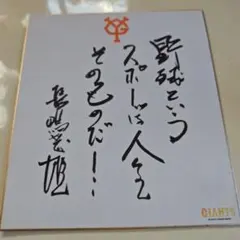 野球という
スポーツは人生
そのものだ！
長嶋茂雄
GIANTS